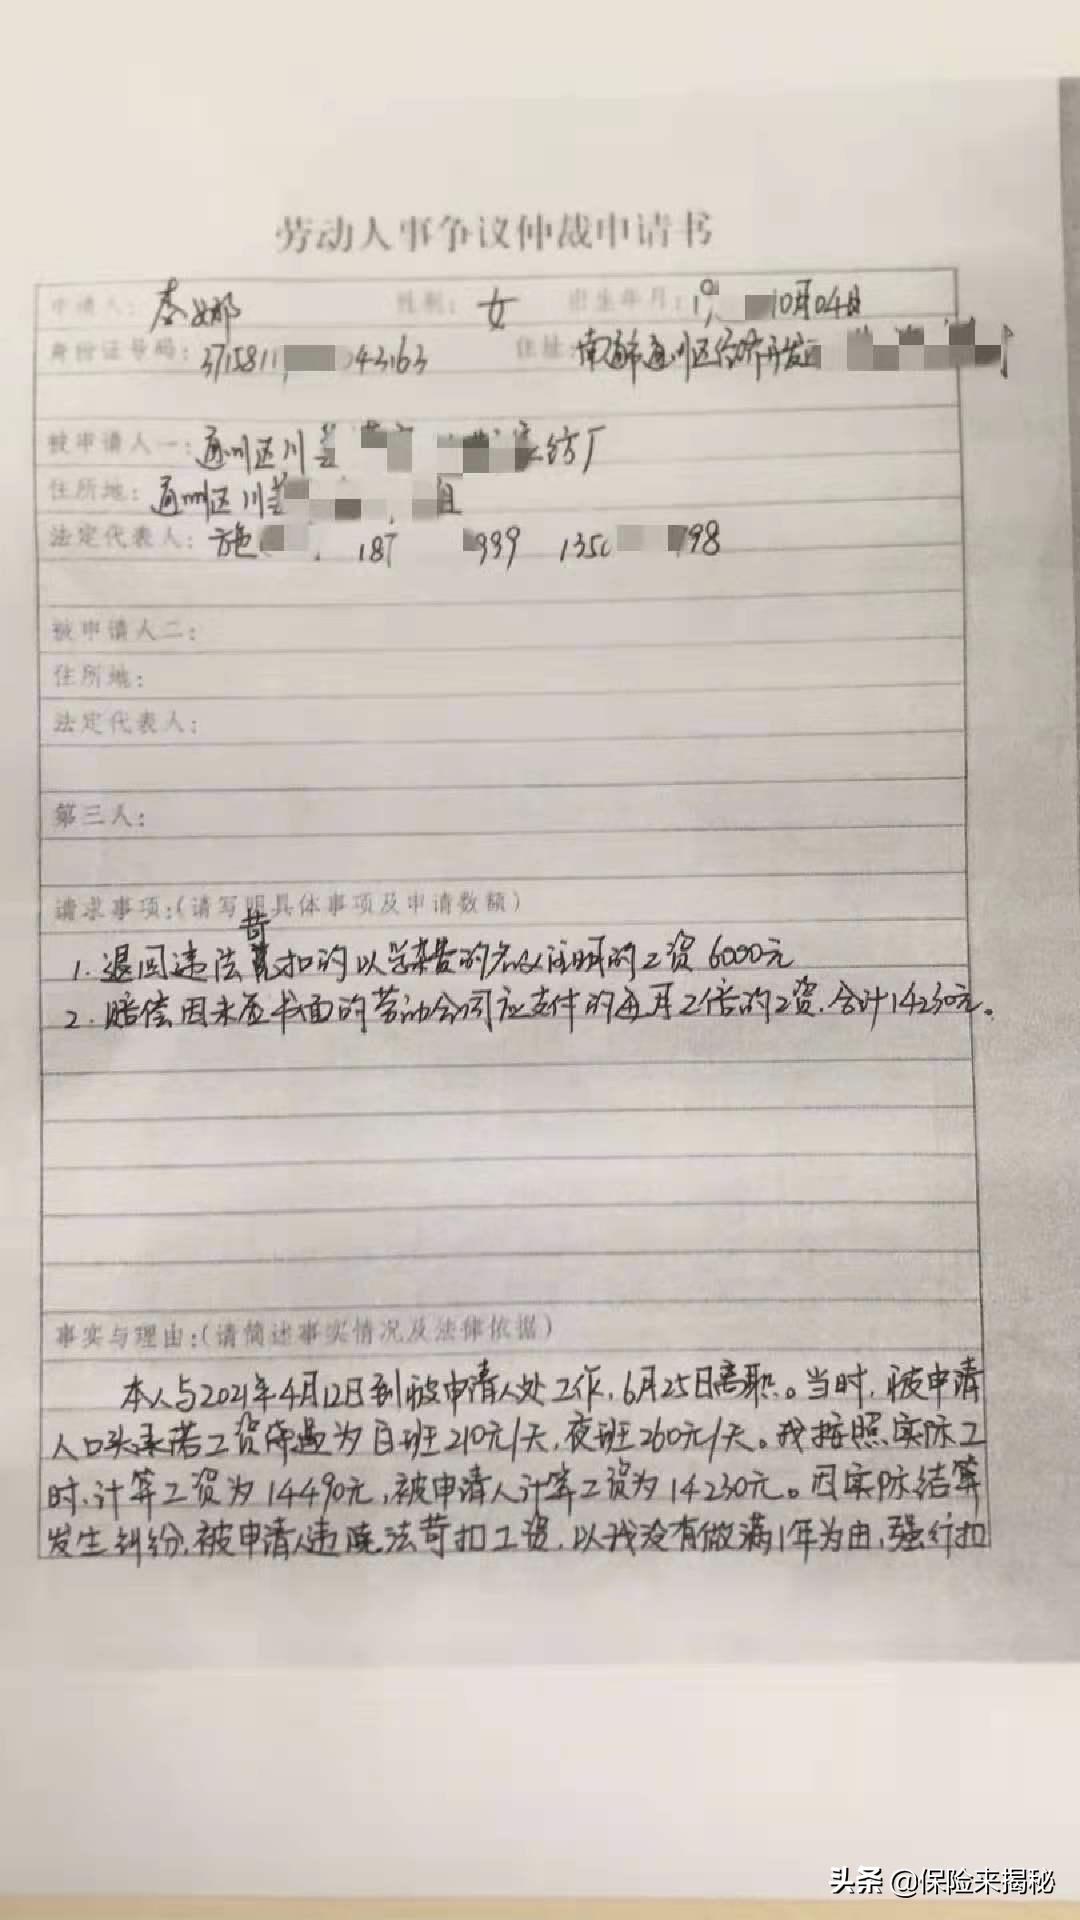 劳动人事争议仲裁申请书
申请人: 李娜 性别: 女 出生年月: 19 10月04日
身份证号码: 3715811 043163 住址: 南通市通川区经济开发
被申请人一: 通州区川姜 纺厂
住所地: 通州区川姜 组
法定代表人: 施 187 939 1350 798
被申请人二:
住所地:
法定代表人:
第三人:
请求事项:(请写明具体事项及申请数额)
1. 退回违法苛扣的以学杂费的名义注明的工资 6000元
2. 赔偿因未签书面的劳动合同应支付的每月2倍的工资.合计14230元。
事实与理由:(请简述事实情况及法律依据)
本人与2021年4月12日到被申请人处工作,6月25日离职。当时,被申请
人口头承诺工资待遇为白班210元/天,夜班260元/天。我按照实际工
时,计算工资为14490元,被申请人计算工资为14230元。因实际结算
发生纠纷,被申请人违法苛扣工资,以我没有做满1年为由,强行扣
头条 @保险来揭秘